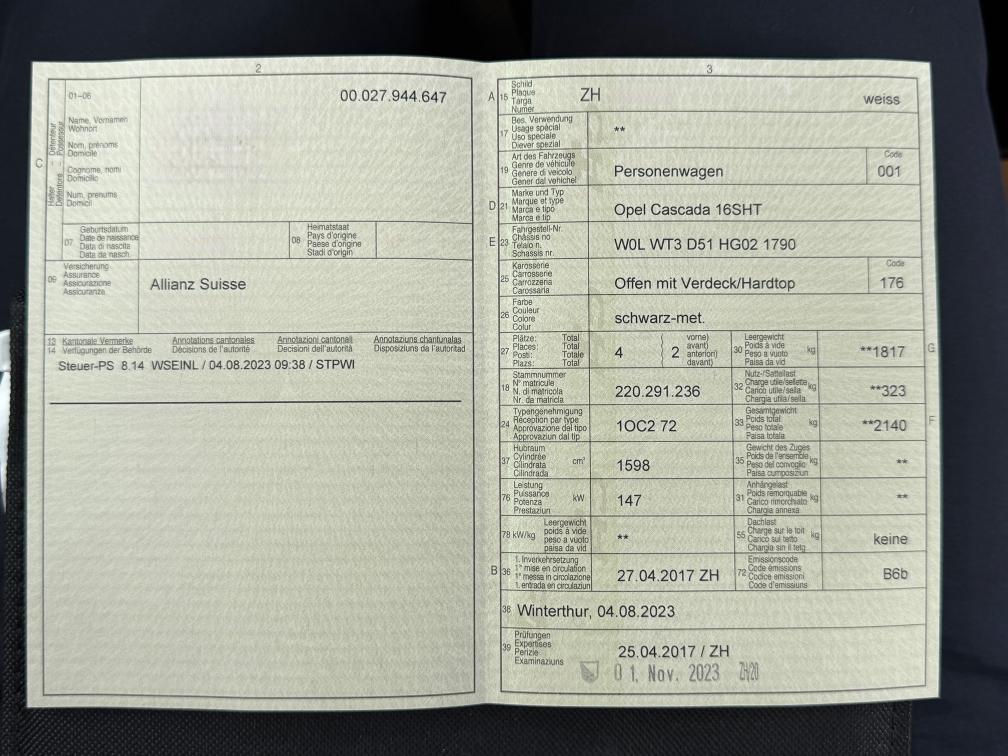 2
01–06
00.027.944.647
C
Halter Détenteur
Detentore Possessur
Name, Vornamen
Wohnort
Nom, prénoms
Domicile
Cognome, nomi
Domicilio
Num, prenums
Domicil
07
Geburtsdatum
Date de naissance
Data di nascita
Data da nasch.
08
Heimatstaat
Pays d'origine
Paese d'origine
Stadi d'origin
09
Versicherung
Assurance
Assicurazione
Assicuranza
Allianz Suisse
13 Kantonale Vermerke Annotations cantonales Annotazioni cantonali Annotaziuns chantunalas
14 Verfügungen der Behörde Décisions de l'autorité Decisioni dell'autorità Disposiziuns da l'autoritad
Steuer-PS 8.14 WSEINL / 04.08.2023 09:38 / STPWI
3
A 15
Schild
Plaque
Targa
Numer
ZH
weiss
17
Bes. Verwendung
Usage spécial
Uso speciale
Diever spezial
**
19
Art des Fahrzeugs
Genre de véhicule
Genere di veicolo
Gener dal vehichel
Personenwagen
Code
001
D 21
Marke und Typ
Marque et type
Marca e tipo
Marca e tip
Opel Cascada 16SHT
E 23
Fahrgestell-Nr.
Châssis no
Telaio n.
Schassis nr.
W0L WT3 D51 HG02 1790
25
Karosserie
Carrosserie
Carrozzeria
Carossaria
Offen mit Verdeck/Hardtop
Code
176
26
Farbe
Couleur
Colore
Colur
schwarz-met.
27
Plätze: Total
Places: Total
Posti: Totale
Plazs: Total
4
2
vorne)
avant)
anteriori)
davant)
30
Leergewicht
Poids à vide
Peso a vuoto
Paisa da vid
kg
**1817
G
18
Stammnummer
N° matricule
N. di matricola
Nr. da matricla
220.291.236
32
Nutz-/Sattellast
Charge utile/sellette
Carico utile/sella
Chargia utila/sella
kg
**323
24
Typengenehmigung
Réception par type
Approvazione del tipo
Approvaziun dal tip
1OC2 72
33
Gesamtgewicht
Poids total
Peso totale
Paisa totala
kg
**2140
F
37
Hubraum
Cylindrée
Cilindrata
Cilindrada
cm³
1598
35
Gewicht des Zuges
Poids de l'ensemble
Peso del convoglio
Paisa cumposiziun
kg
**
76
Leistung
Puissance
Potenza
Prestaziun
kW
147
31
Anhängelast
Poids remorquable
Carico rimorchiato
Chargia annexa
kg
**
78 kW/kg
Leergewicht
poids à vide
peso a vuoto
paisa da vid
**
55
Dachlast
Charge sur le toit
Carico sul tetto
Chargia sin il tetg
kg
keine
B 36
1. Inverkehrsetzung
1re mise en circulation
1a messa in circolazione
1. entrada en circulaziun
27.04.2017 ZH
72
Emissionscode
Code émissions
Codice emissioni
Code d'emissiuns
B6b
38
Winterthur, 04.08.2023
39
Prüfungen
Expertises
Perizie
Examinaziuns
25.04.2017 / ZH
0 1. Nov. 2023 ZH/20